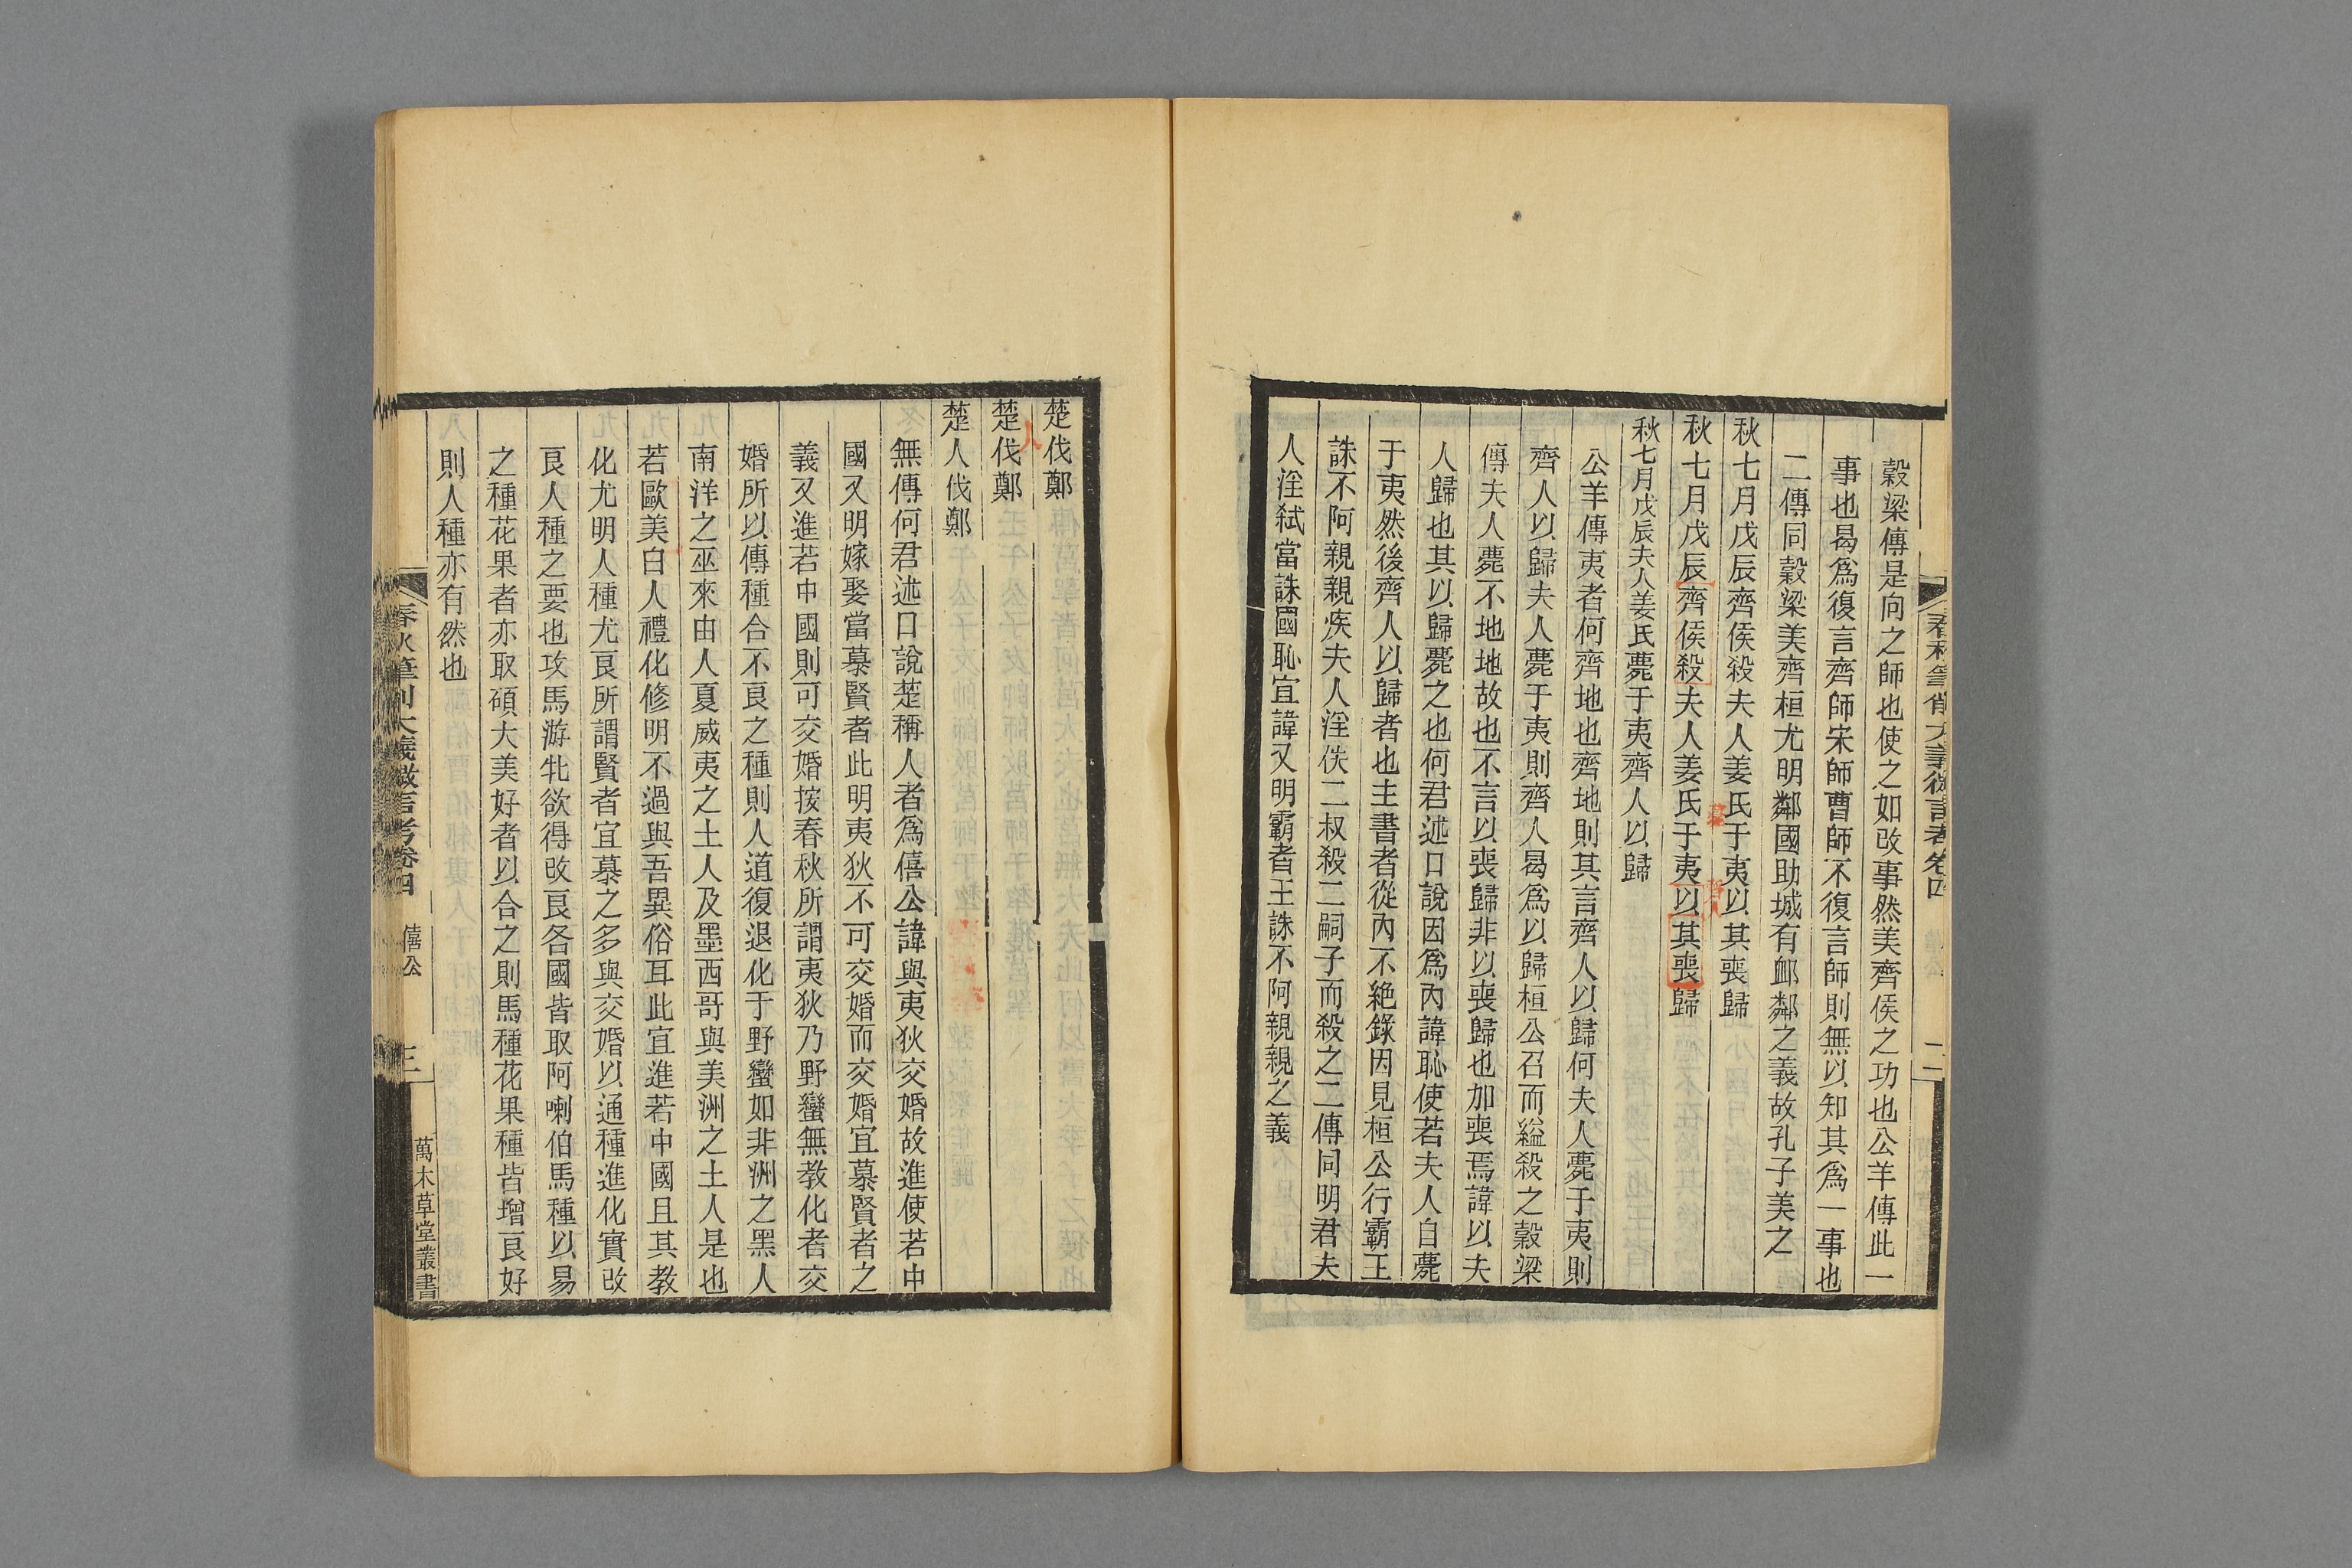 春秋筆削大義微言考卷四
二
穀梁傳是向之師也使之如改事然美齊侯之功也公羊傳此一
事也曷爲復言齊師宋師曹師不復言師則無以知其爲一事也
二傳同穀梁美齊桓尤明鄰國助城有卹鄰之義故孔子美之
秋七月戊辰齊侯殺夫人姜氏于夷以其喪歸
薨
齊人
秋七月戊辰齊侯殺夫人姜氏于夷以其喪歸
秋七月戊辰夫人姜氏薨于夷齊人以歸
公羊傳夷者何齊地也齊地則其言齊人以歸何夫人薨于夷則
齊人以歸夫人薨于夷則齊人曷爲以歸桓公召而縊殺之穀梁
傳夫人薨不地地故也不言以喪歸非以喪歸也加喪焉諱以夫
人歸也其以歸薨之也何君述口說因爲內諱恥使若夫人自薨
于夷然後齊人以歸者也主書者從內不絕錄因見桓公行霸王
誅不阿親親疾夫人淫佚二叔殺二嗣子而殺之二傳同明君夫
人淫弑當誅國恥宜諱又明霸者王誅不阿親親之義
楚伐鄭
人
楚伐鄭
楚人伐鄭
無傳何君述口說楚稱人者爲僖公諱與夷狄交婚故進使若中
國又明嫁娶當慕賢者此明夷狄不可交婚而交婚宜慕賢者之
義又進若中國則可交婚按春秋所謂夷狄乃野蠻無敎化者交
婚所以傳種合不良之種則人道復退化于野蠻如非洲之黑人
南洋之巫來由人夏威夷之土人及墨西哥與美洲之土人是也
若歐美白人禮化修明不過與吾異俗耳此宜進若中國且其敎
化尤明人種尤良所謂賢者宜慕之多與交婚以通種進化實改
良人種之要也攻馬游牝欲得改良各國皆取阿喇伯馬種以易
之種花果者亦取碩大美好者以合之則馬種花果種皆增良好
則人種亦有然也
春秋筆削大義微言考卷四
僖公
三
萬木草堂叢書